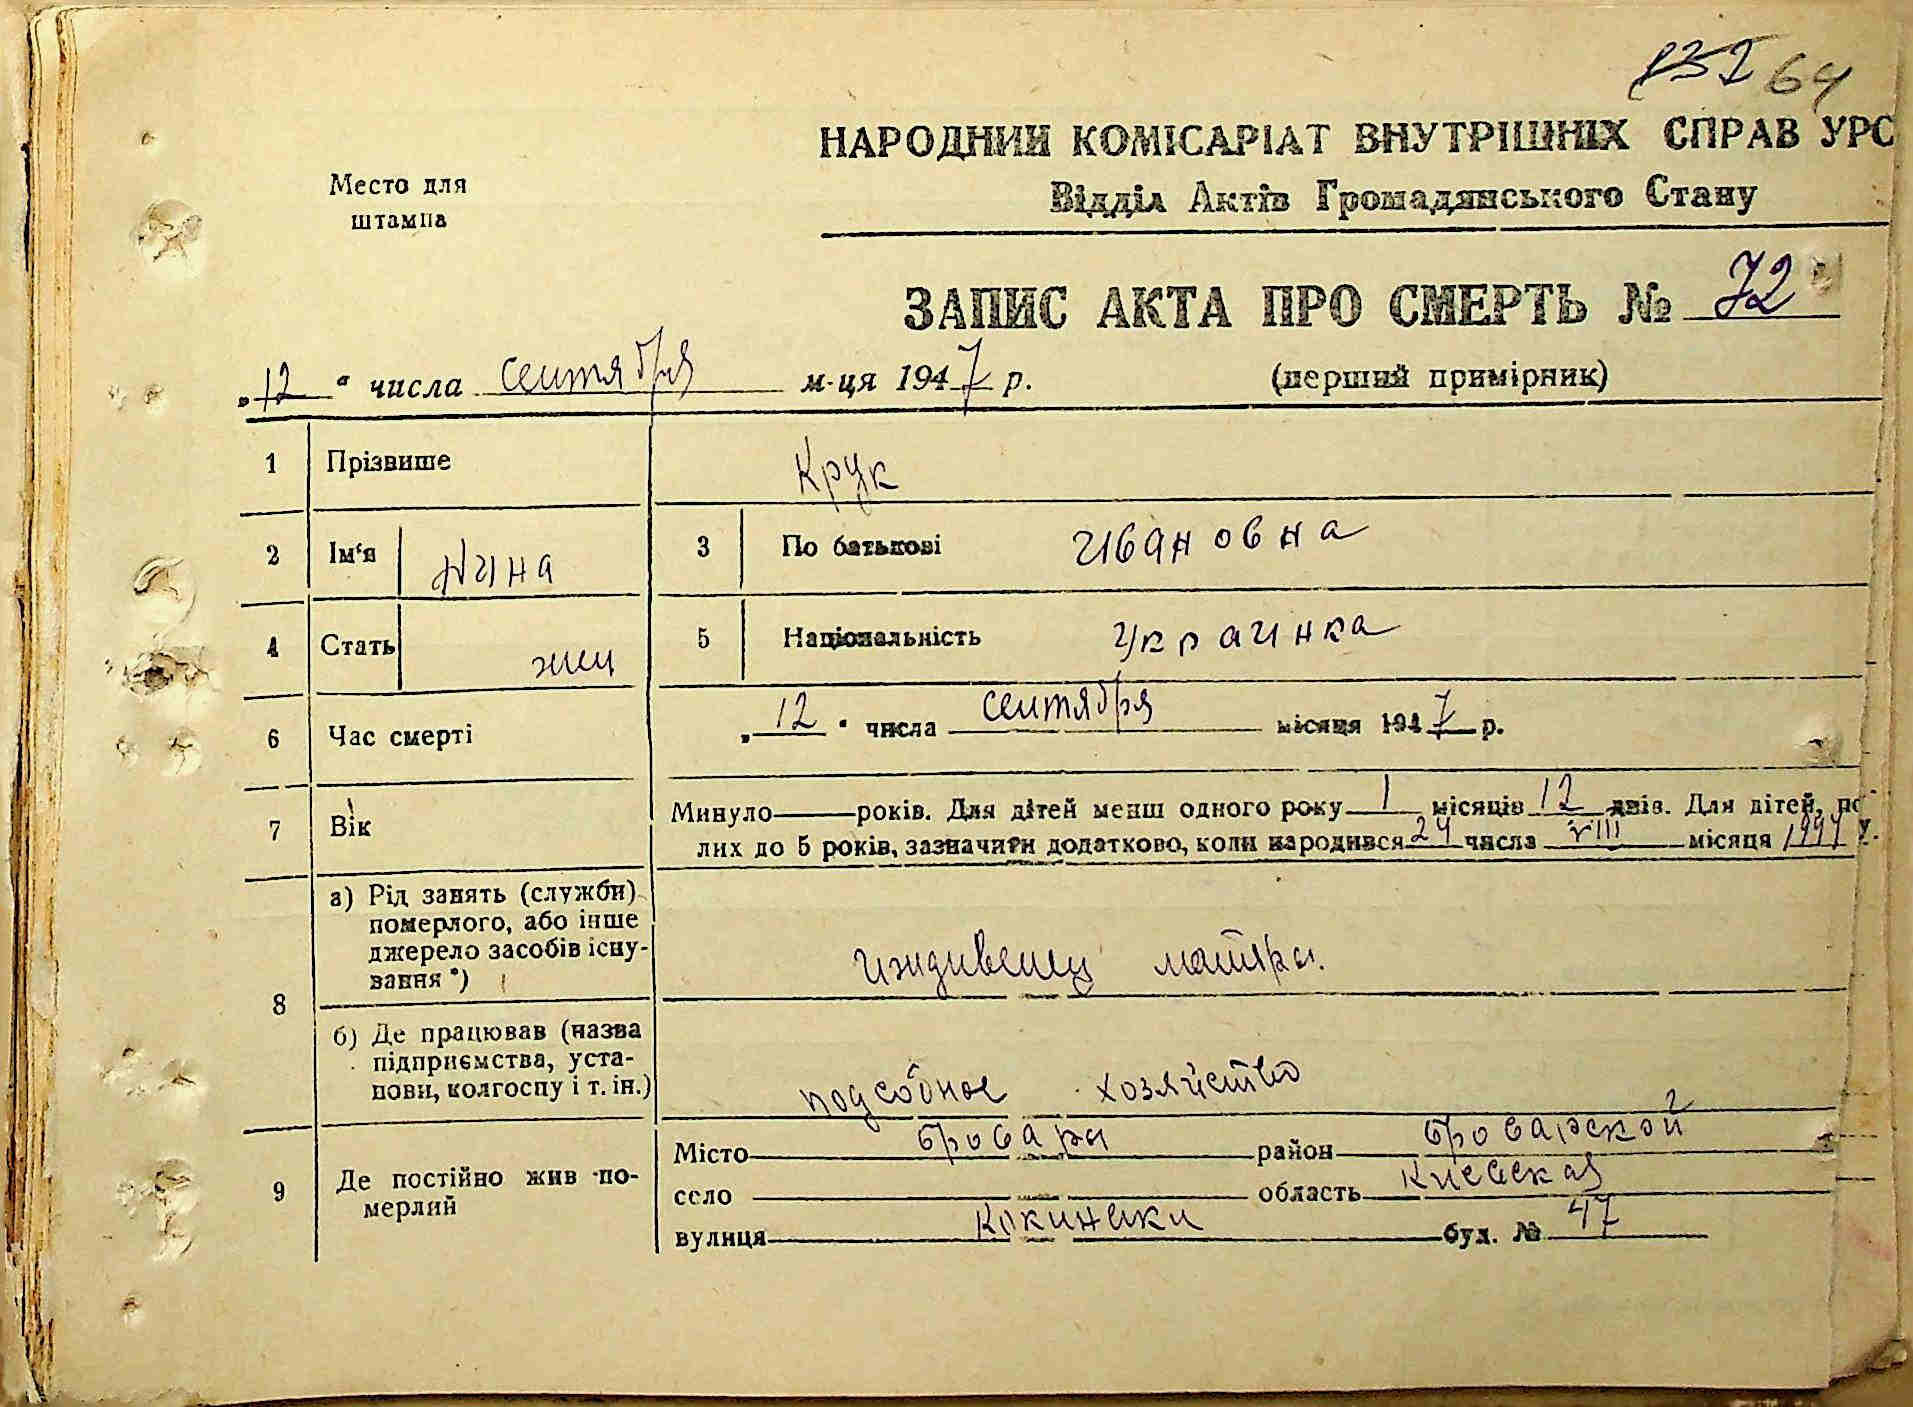 64
НАРОДНИЙ КОМІСАРІАТ ВНУТРІШНІХ СПРАВ УРС
Відділ Актів Громадянського Стану
Место для
штампа
ЗАПИС АКТА ПРО СМЕРТЬ № 72
„12" числа сентября м-ця 1947 р. (перший примірник)
1 Прізвише Крук
2 Ім'я Нина 3 По батькові Ивановна
4 Стать жен 5 Національність Украинка
6 Час смерті „12" числа сентября місяця 1947 р.
7 Вік Минуло——років. Для дітей менш одного року 1 місяців 12 днів. Для дітей, по
лих до 5 років, зазначити додатково, коли народився 24 числа VIII місяця 1947 у.
8 а) Рід занять (служби)
померлого, або інше
джерело засобів існу-
вання *) иждивенец матери.
б) Де працював (назва
підприємства, уста-
нови, колгоспу і т. ін.) подсобное хозяйство
9 Де постійно жив по-
мерлий
Місто Бровары район Броварской
село область Киевская
вулиця Кокинаки буд. № 47